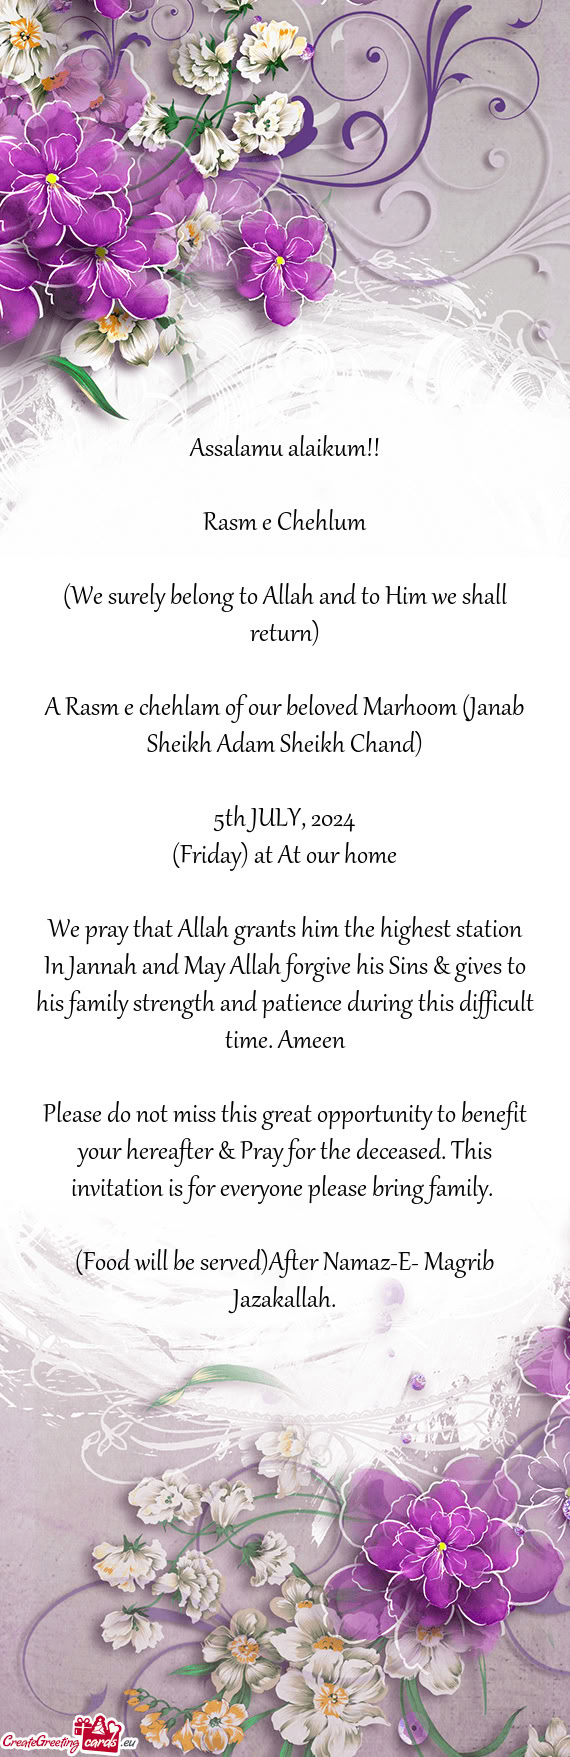 Assalamu alaikum!!
Rasm e Chehlum
(We surely belong to Allah and to Him we shall
return)
A Rasm e chehlam of our beloved Marhoom (Janab
Sheikh Adam Sheikh Chand)
5th JULY, 2024
(Friday) at At our home
We pray that Allah grants him the highest station
In Jannah and May Allah forgive his Sins & gives to
his family strength and patience during this difficult
time. Ameen
Please do not miss this great opportunity to benefit
your hereafter & Pray for the deceased. This
invitation is for everyone please bring family.
(Food will be served)After Namaz-E- Magrib
Jazakallah.
CreateGreeting cards .eu